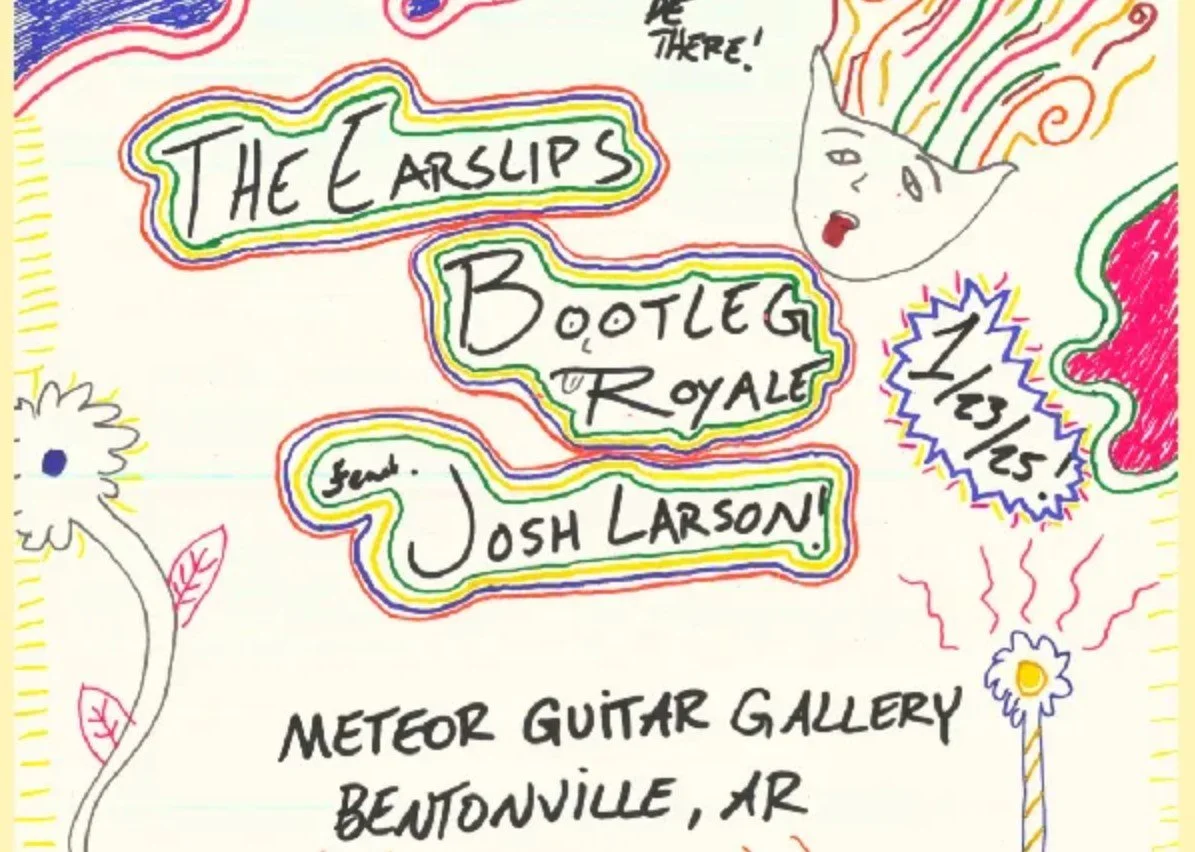 BE
THERE!
THE EARSLIPS
BOOTLEG
ROYALE
1/23/25!
feat.
JOSH LARSON!
METEOR GUITAR GALLERY
BENTONVILLE, AR